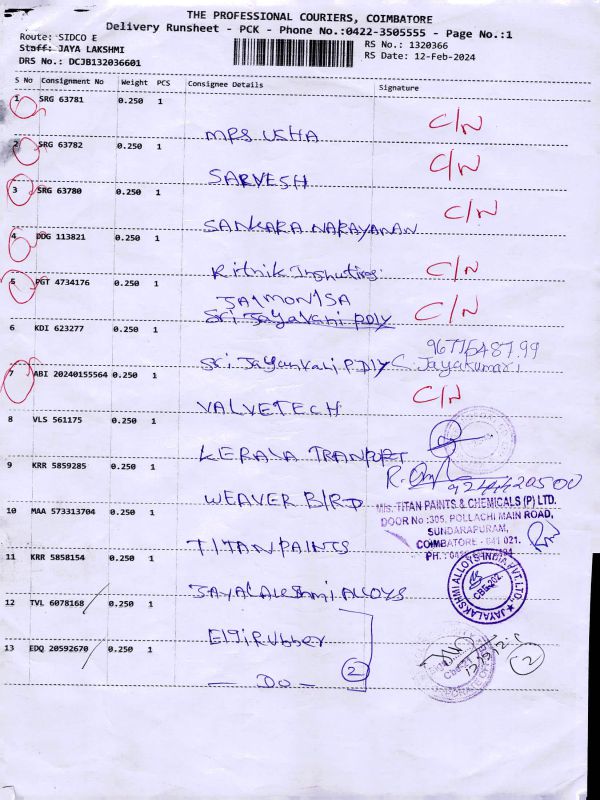 THE PROFESSIONAL COURIERS, COIMBATORE
Delivery Runsheet - PCK - Phone No.:0422-3505555 - Page No.:1
Route: SIDCO E
RS No.: 1320366
Staff: JAYA LAKSHMI
RS Date: 12-Feb-2024
DRS No.: DCJB132036601
S No Consignment No Weight PCS Consignee Details Signature
1 SRG 63781 0.250 1 MRS USHA C/N
2 SRG 63782 0.250 1 SARVESH C/N
3 SRG 63780 0.250 1 SANKARA NARAYANAN C/N
4 DDG 113821 0.250 1 Rithik C/N
5 PGT 4734176 0.250 1 C/N
6 KDI 623277 0.250 1 Sri
Jayakumari
7 ABI 20240155564 0.250 1 VALVETECH C/N
8 VLS 561175 0.250 1 KERALA TRANPORT
9 KRR 5859285 0.250 1 WEAVER BIRD
10 MAA 573313704 0.250 1 TITAN PAINTS
M/s. TITAN PAINTS & CHEMICALS (P) LTD.
DOOR No :305, POLLACHI MAIN ROAD,
SUNDARAPURAM,
COIMBATORE - 641 021.
11 KRR 5858154 0.250 1 JAYALAKSHMI ALLOYS
JAYALAKSHMI ALLOYS INDIA PVT. LTD.,
12 TVL 6078168 0.250 1 Elgi Rubber
13 EDQ 20592670 0.250 1 - Do - 2
2